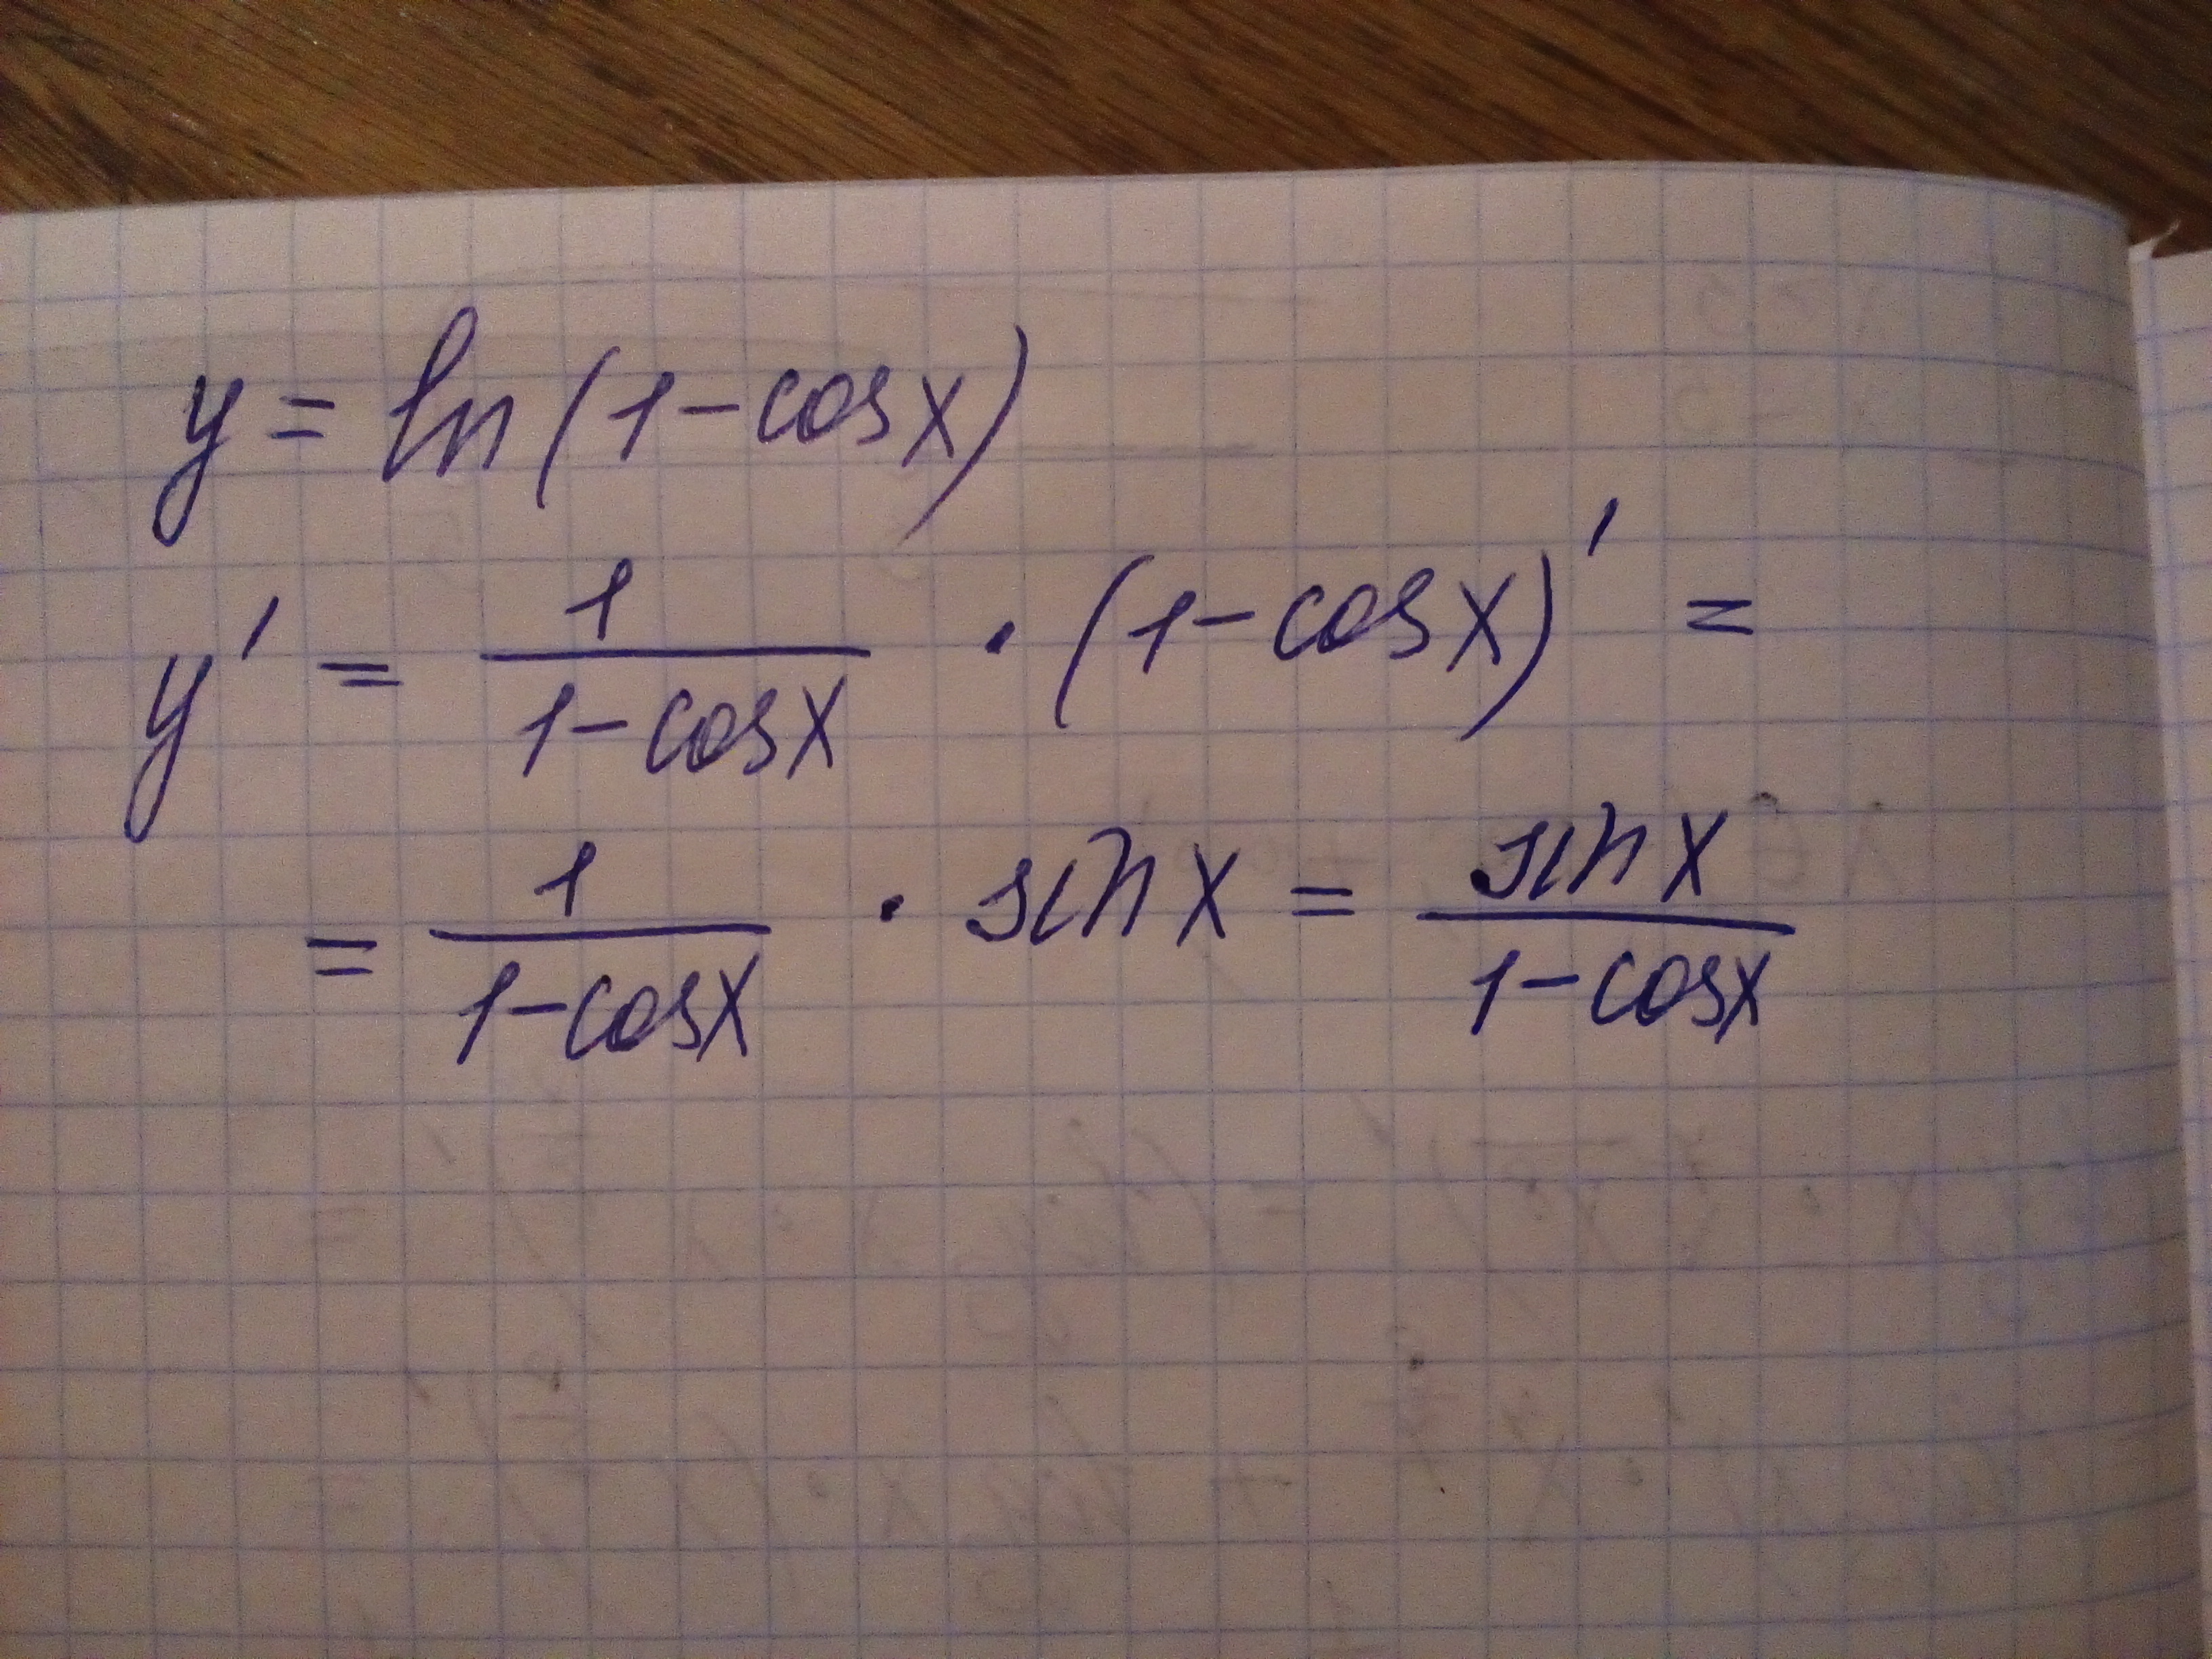 y = ln(1-cosx)
y' = 1/(1-cosx) · (1-cosx)' =
= 1/(1-cosx) · sinx = sinx/(1-cosx)